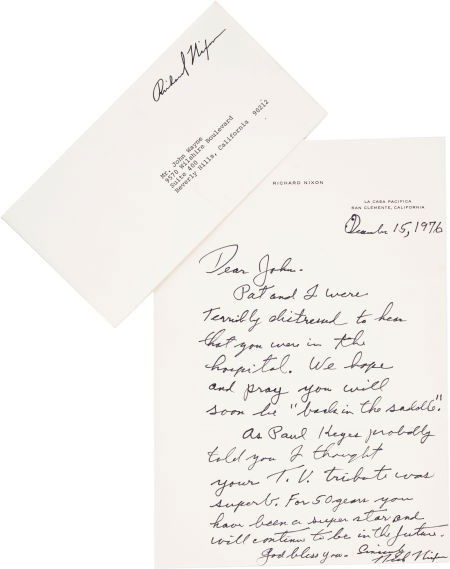 Richard Nixon
Mr. John Wayne
9570 Wilshire Boulevard
Suite 400
Beverly Hills, California 90212
RICHARD NIXON
LA CASA PACIFICA
SAN CLEMENTE, CALIFORNIA
December 15, 1976
Dear John -
Pat and I were
terribly distressed to hear
that you were in the
hospital. We hope
and pray you will
soon be "back in the saddle."
As Paul Keyes probably
told you I thought
your T.V. tribute was
superb. For 50 years you
have been a super star and
will continue to be in the future.
God bless you. Sincerely
Dick Nixon